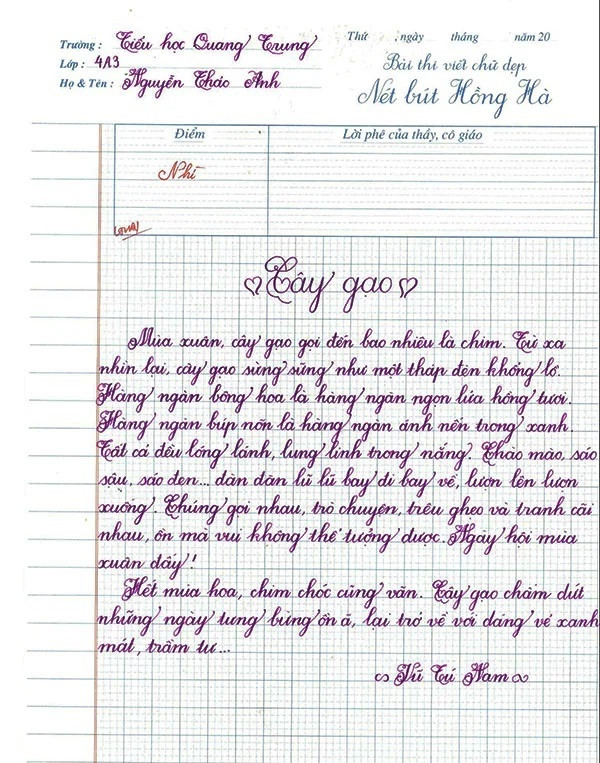 Thứ , ngày tháng năm 20
Trường : Tiểu học Quang Trung
Lớp : 4A3
Họ & Tên : Nguyễn Thảo Anh
Bài thi viết chữ đẹp
Nét bút Hồng Hà
Điểm
Lời phê của thầy, cô giáo
Nhì
Cây gạo
Mùa xuân, cây gạo gọi đến bao nhiêu là chim. Từ xa
nhìn lại, cây gạo sừng sững như một tháp đèn khổng lồ.
Hàng ngàn bông hoa là hàng ngàn ngọn lửa hồng tươi.
Hàng ngàn búp nõn là hàng ngàn ánh nến trong xanh.
Tất cả đều lóng lánh, lung linh trong nắng. Chào mào, sáo
sậu, sáo đen... đàn đàn lũ lũ bay đi bay về, lượn lên lượn
xuống. Chúng gọi nhau, trò chuyện, trêu ghẹo và tranh cãi
nhau, ồn mà vui không thể tưởng được. Ngày hội mùa
xuân đấy!
Hết mùa hoa, chim chóc cũng vãn. Cây gạo chấm dứt
những ngày tưng bừng ồn ã, lại trở về với dáng vẻ xanh
mát, trầm tư...
Vũ Tú Nam